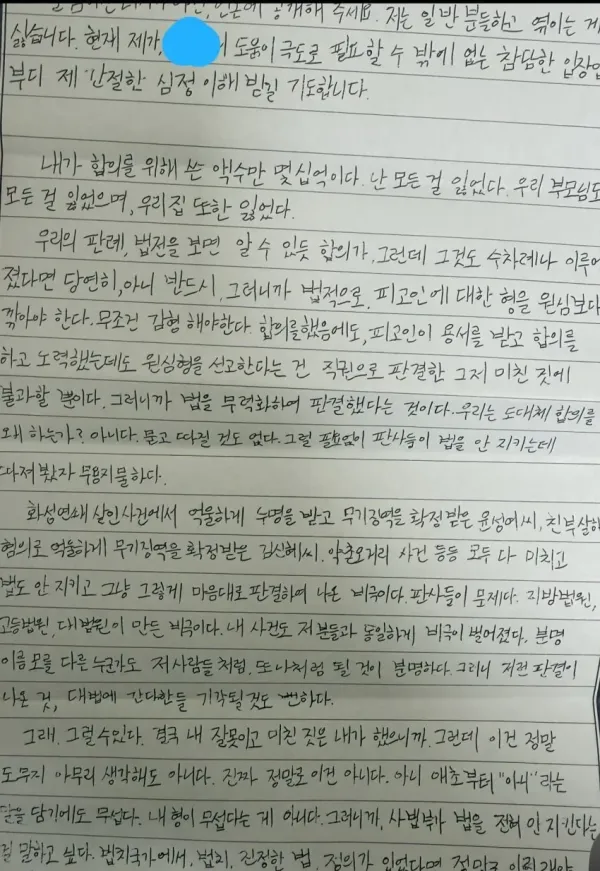 언론에 공개해 주세요. 저는 일반 분들하고 엮이는 게
싫습니다. 현재 제가, 도움이 극도로 필요할 수 밖에 없는 참담한 입장입
부디 제 간절한 심정 이해 받길 기도합니다.
내가 합의를 위해 쓴 액수만 몇십억이다. 난 모든 걸 잃었다. 우리 부모님도
모든 걸 잃었으며, 우리집 또한 잃었다.
우리의 판례, 법전을 보면 알 수 있듯 합의가, 그런데 그것도 수차례나 이루어
졌다면 당연히, 아니 반드시, 그러니까 법적으로, 피고인에 대한 형을 원심보다
깎아야 한다. 무조건 감형 해야한다. 합의를했음에도, 피고인이 용서를 받고 합의를
하고 노력했는데도 원심형을 선고한다는 건 직권으로 판결한 그저 미친 짓에
불과할 뿐이다. 그러니까 법을 무력화하여 판결했다는 것이다. 우리는 도대체 합의를
왜 하는가? 아니다. 묻고 따질 것도 없다. 그럴 필요없이 판사들이 법을 안 지키는데
따져 봤자 무용지물하다.
화성연쇄 살인사건에서 억울하게 누명을 받고 무기징역을 확정받은 윤성여씨, 친부살해
혐의로 억울하게 무기징역을 확정받은 김신혜씨, 약촌오거리 사건 등등 모두 다 미치고
법도 안 지키고 그냥 그렇게 마음대로 판결하여 나온 비극이다. 판사들이 문제다. 지방법원,
고등법원, 대법원이 만든 비극이다. 내 사건도 저분들과 동일하게 비극이 벌어졌다. 분명
이름모를 다른 누군가도 저 사람들 처럼, 또 나처럼 될 것이 분명하다. 그러니 저런 판결이
나온 것, 대법에 간다한들 기각될 것도 뻔하다.
그래. 그럴 수있다. 결국 내 잘못이고 미친 짓은 내가 했으니까. 그런데 이건 정말
도무지 아무리 생각해도 아니다. 진짜 정말로 이건 아니다. 아니 애초부터 "아니"라는
말을 담기에도 무섭다. 내 형이 무섭다는 게 아니다. 그러니까, 사법부가 법을 전혀 안 지킨다는
걸 말하고 싶다. 법치국가에서, 법치, 진정한 법, 정의가 있었다면 정말로